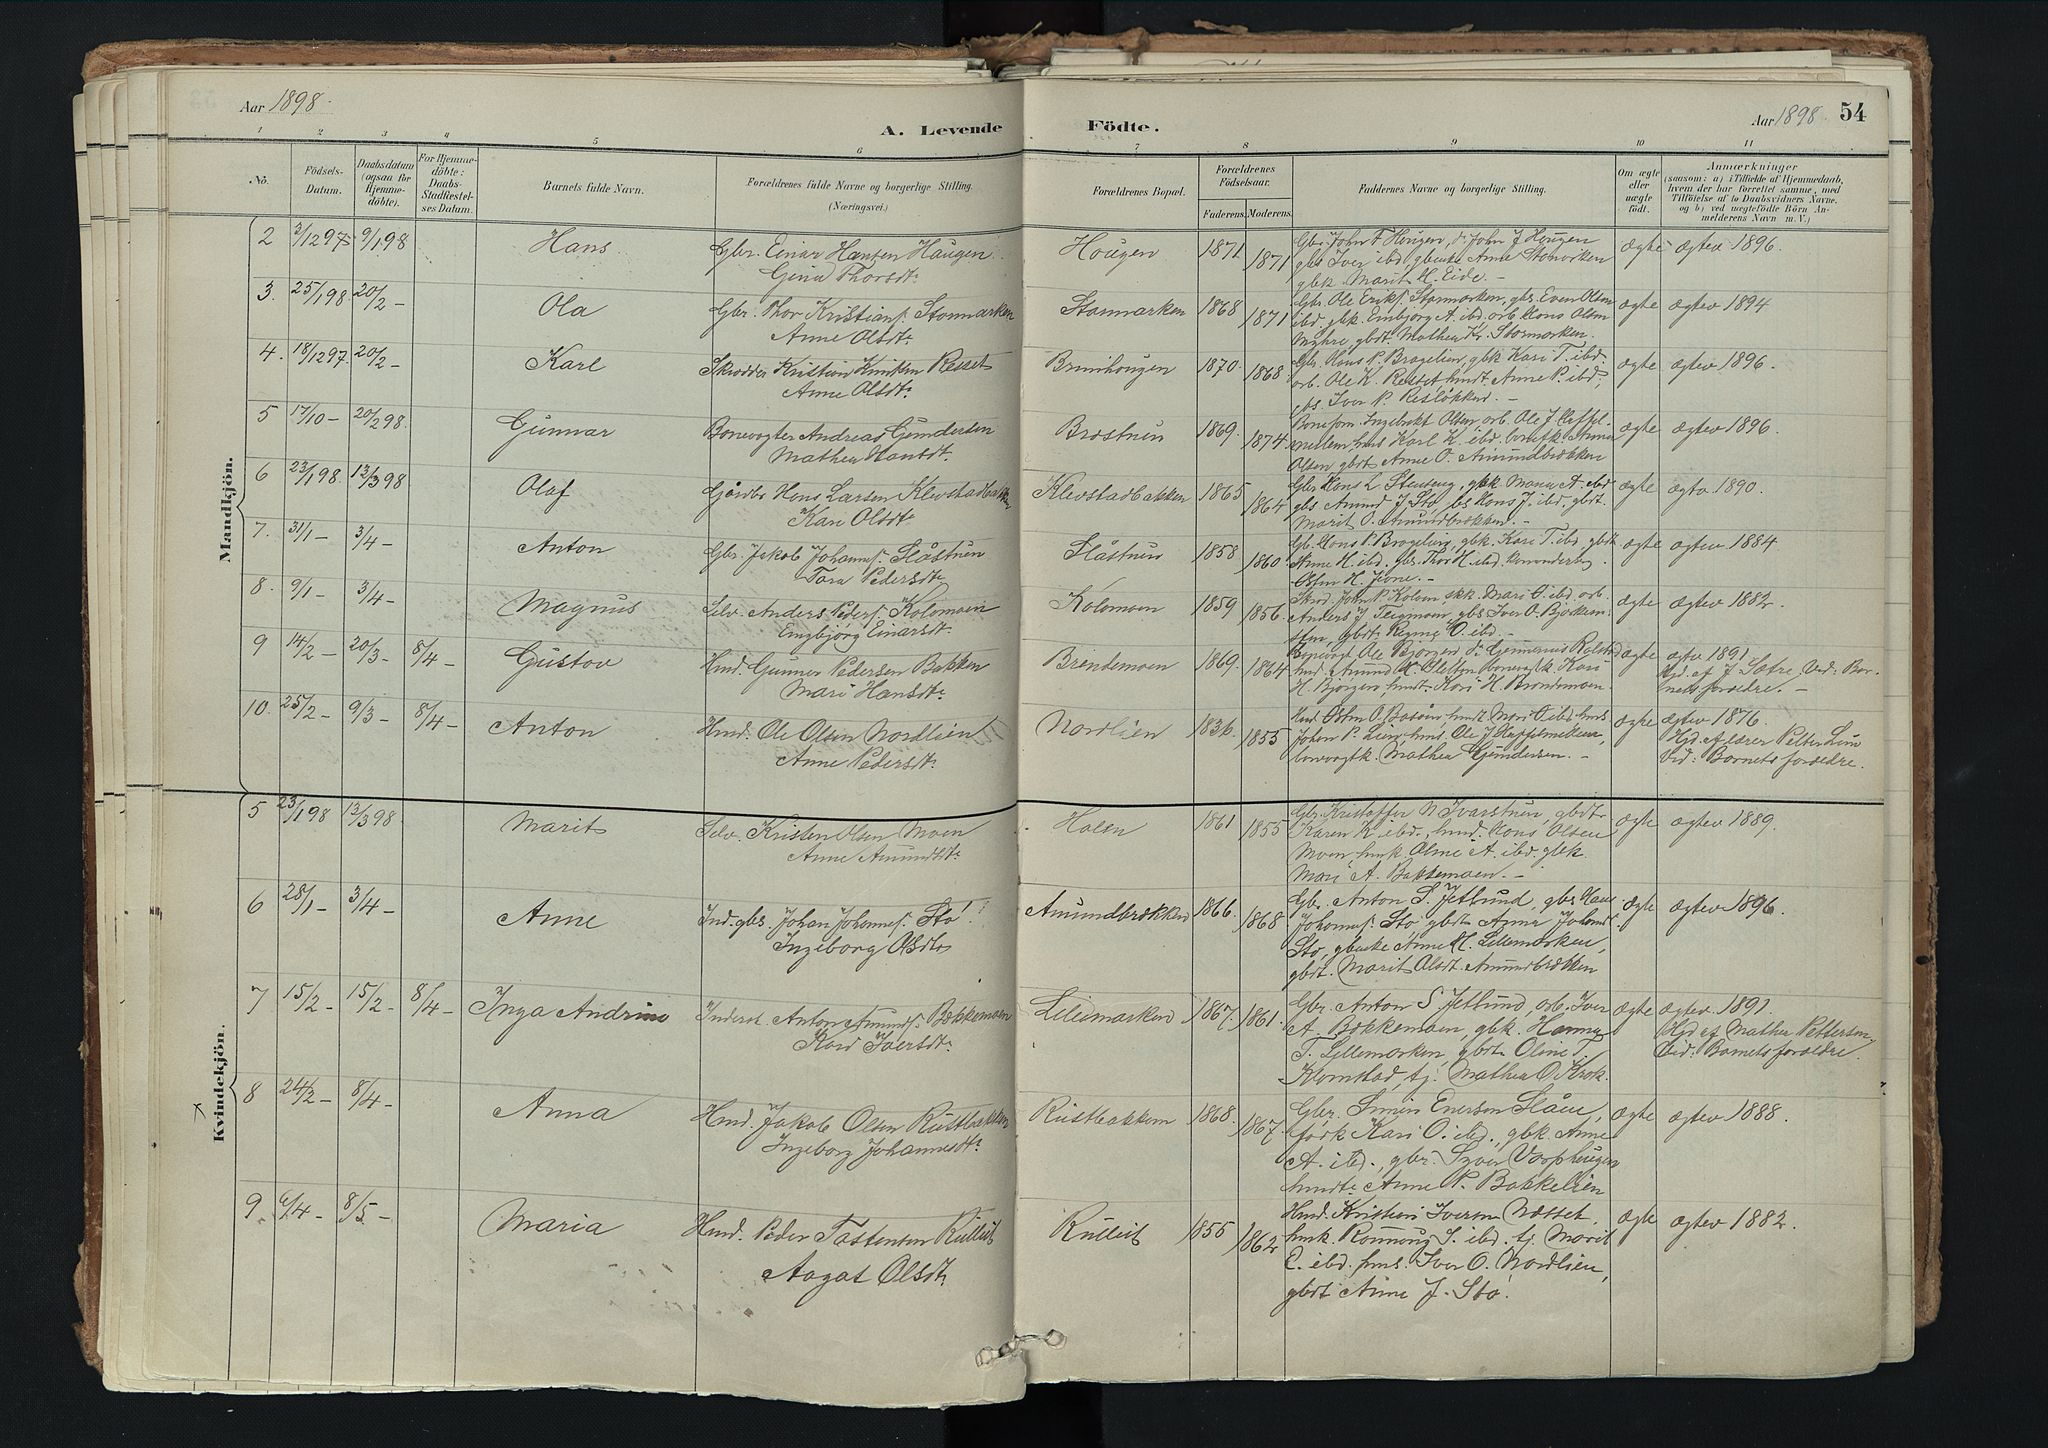 Aar 1898.
A. Levende Födte.
Aar 1898. 54
1 2 3 4 5 6 7 8 9 10 11
No.
Födsels-Datum.
Daabsdatum (ogsaa for Hjemme-döbte).
For Hjemme-döbte: Daabs-Stadfæstel-ses Datum.
Barnets fulde Navn.
Forældrenes fulde Navne og borgerlige Stilling.
(Næringsvei.)
Forældrenes Bopæl.
Forældrenes Födselsaar.
Faderens. Moderens.
Faddernes Navne og borgerlige Stilling.
Om ægte eller uægte födt.
Anmærkninger
(saasom: a) i Tilfælde af Hjemmedaab, hvem der har forrettet samme, med Tilföielse af to Daabsvidners Navne, og b) ved uægtefödte Börn An-melderens Navn m. V.)
Mandkjön.
2 3/12 97 9/1 98 Hans. Gbr. Einar Hansen Haugen
Gina Thorsdt.
Hougen 1871 1871
Gbr. John T. Hougen, John J. Hougen
gbs Iver ibd gbenke Anne Stomarken
gbk Marit H. Eide. -
ægte ægtev 1896.
3. 25/1 98 20/2 - Ola Gbr. Thor Kristians. Stormarken
Anne Olsdt.
Stormarken 1868 1871
Gbr. Ole Eriks. Stormarken, gbs. Even Olsen
ibd. gbk. Embjørg A. ibd. arb. Hans Olsen
Mæhre, gbdt. Mathea Kr. Stormarken.
ægte ægtev 1894
4. 18/12 97. 20/2 - Karl Skrædder Kristian Resset
Anne Olsdt.
Brunihougen 1870. 1868
Gbr. Hans P. Bragelien, gbk Kari T. ibd.
arb. Ole K. Resset, Anne P. ibd.
gbs. Iver P.
ægte ægtev 1896.
5 17/10 - 20/2 98. Gunnar Banevogter Andreas Gundersen
Mathea Hansdt.
Brostuen 1869. 1874.
Ingebrekt Olsen, arb. Ole J.
Karl K. ibd.
Olsen, gbdt Anne O. Amundbrækken
ægte ægtev 1896.
6 23/1 98. 13/3 98 Olaf Hans Larsen Klevstadbakken
Kari Olsdt.
Klevstadbakken 1865 1864
Gbr. Hans L. Stenseng, gbk. Maria A. ibd
gbs Amund J. Stø, gbs Hans J. ibd. gbdt.
Marit O. Amundbrækken. -
ægte ægtv 1890.
7. 31/1 - 3/4 - Anton Gbr. Jakob Johannes. Slåstuen
Tora Pedersdt.
Slåstuen 1858 1860
Gb. Hans P. Bragelien, gbk. Kari T. ibd. gbk
Anne H. ibd. gbs. Thor H. ibd.
Osten H. -
ægte ægtev 1884
8. 9/1 - 3/4 - Magnus Selv. Anders Peders. Kolomoen
Engbjørg Einarsdt.
Kolomoen 1859 1856.
Skrd. John P. Kolven skk. Mari O. ibd arb.
Anders J. Teigmoen, gbs Iver O.
gbdt. O. ibd. -
ægte ægtev 1882.
9 14/2 - 20/3 - 8/4 - Gustav Hmd. Gunner Pedersen Bakken
Mari Hansdt.
Brendemoen 1869. 1864
Banevogt. Ole Bjørgen
hmd. Amund Kari
H. Bjørgen, Kari H. Brendemoen.
ægte ægtv 1891
Hjd. af J. Sætre. Vid: Bar-
nets forældre. -
10. 25/2 - 9/3 - 8/4 - Anton Hmd. Ole Olsen Nordlien
Anne Pedersdt.
Nordlien 1836. 1855
Hmd. Osten O. Mari O. ibd hms
Johan P. Lien, hms. Ole J.
Mathea Gundersen. -
ægte ægtev 1876.
Hjd. af lærer Petter Lun
Vid: Barnets forældre.
Kvindekjön.
5 23/1 98 13/3 98 Marit Selv. Kristen Olsen Moen
Anne Amundsdt.
Holen 1861 1855
Gbr. Kristoffer N. Ivarstuen, gbdt.
Karen K. ibd., hmd. Hans Olsen
Moen, hmk Oline A. ibd. gbk.
Mari A. Bakkemoen. -
ægte ægtev 1889.
6 28/1 - 3/4 - Anne Ind. gbs. Johan Johannes. Stø
Ingeborg Olsdt.
Amundbrækken 1866. 1868.
Gbr. Anton S. Jetlund, gbs Hans
Johannes. Stø, gbdt Anna Johansdt.
Stø, gbenke Anne H. Lillemarken,
gbdt. Marit Olsdt. Amundbrækken
ægte ægtev 1896.
7 15/2 - 15/2 - 8/4 - Inga Andrine Inderst. Anton Amunds. Bakkemoen
Kari Iversdt.
Lillemarken 1867. 1861.
Gbr. Anton S. Jetlund, arb. Iver
A. Bakkemoen, gbk. Hanna
T. Lillemarken, gbdt Oline T.
Klomstad, tj. Mathea O. Krok.
ægte ægtev. 1891.
Hjd af Mathea Pettersen.
Vid: Barnets forældre.
8 24/2 - 8/4 - Anna Hmd. Jakob Olsen Rustbakken
Ingeborg Johannesdt.
Rustbakken 1868. 1867.
Gbr. Simen Enersen Slåen,
førk Kari O. ibd., gbk. Anne
A. ibd., gbr. Syver Vorphaugen
hmdt. Anne P. Bakkelien
ægte ægtev 1888.
9 6/4 - 8/5 - Maria Hmd. Peder Tostensen Rulleit
Aagat Olsdt.
Rulleit 1855 1862
Hmd. Kristian Iversen Næsset,
hmk. Rønnoug S. ibd. tj. Marit
E. ibd. hms. Iver O. Nordlien,
gbdt Anne J. Stø.
ægte ægtev 1882.